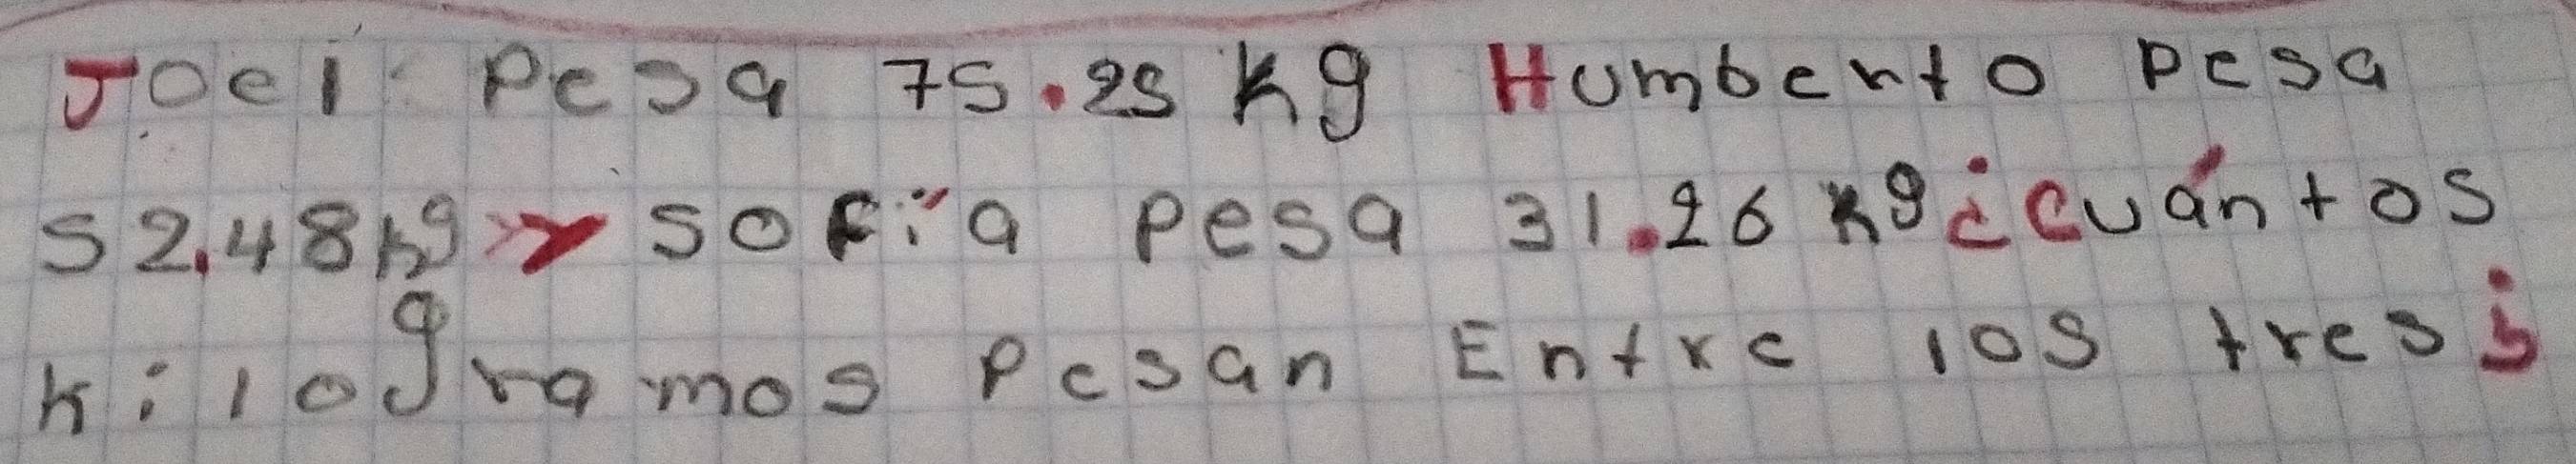 Joel Pesa 75.25 Kg Humberto Pesa
52.48 kg y Sofía Pesa 31.26 kg ¿Cuántos
kilogramos Pesan Entre los tres?